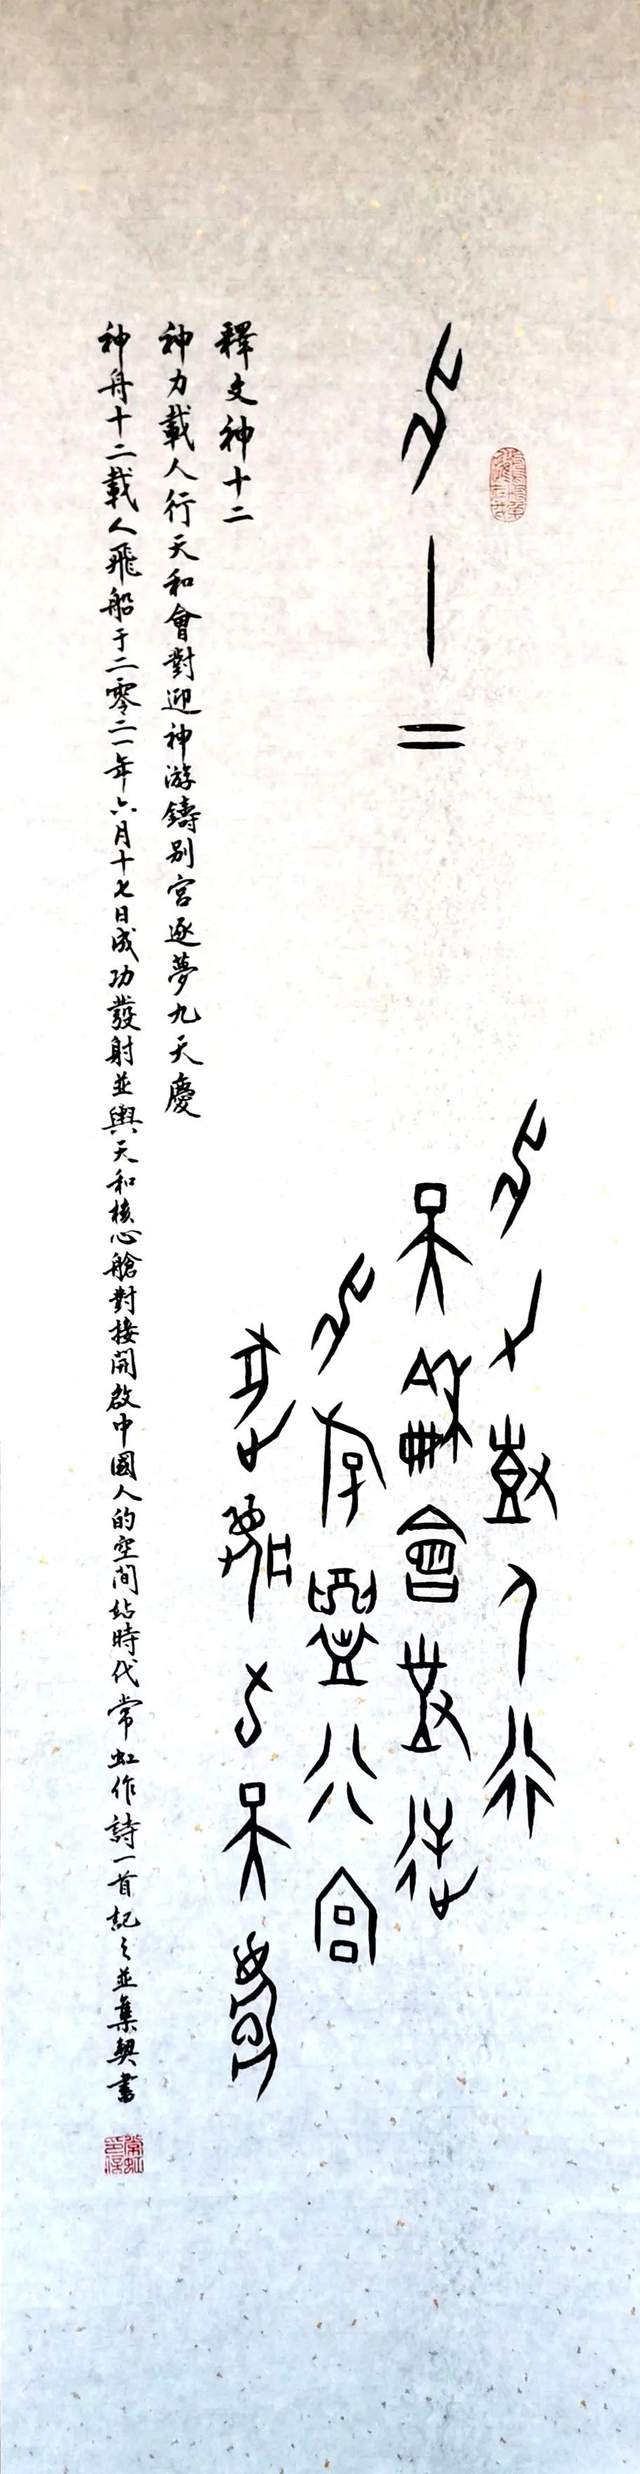 神十二
神力載人行
天和會對迎
神游鑄别宮
逐夢九天慶
釋文神十二
神力載人行天和會對迎神游鑄别宮逐夢九天慶
神舟十二載人飛船于二零二一年六月十七日成功發射並與天和核心艙對接開啟中國人的空間站時代常虹作詩一首記之並集契書